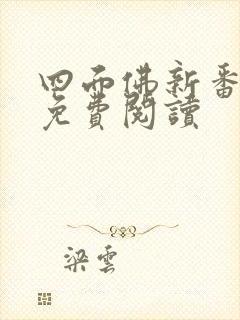 四面佛新番
免費閱讀
梁雲